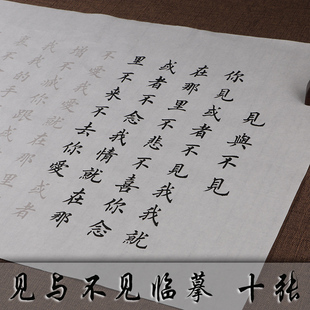 見與不見
你見或者不見我我就
在那里不悲不喜你念
或者不念我情就在那
里不来不去你愛
不愛我愛就在那
见与不见临摹 十张